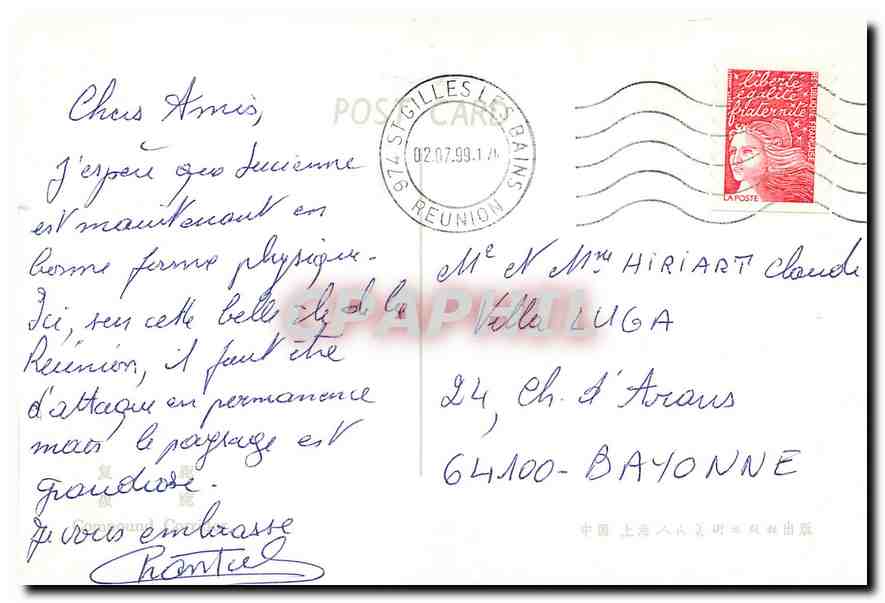 Chers Amis,
J'espère que Lucienne
est maintenant en
bonne forme physique.
Ici, sur cette belle île de la
Réunion, il faut être
d'attaque en permanence
mais le paysage est
grandiose.
Je vous embrasse
Chantal
POST CARD
974 ST GILLES LES BAINS
02.07.99
REUNION
liberté
égalité
fraternité
REPUBLIQUE FRANÇAISE
LA POSTE
Mr et Mme HIRIART Claude
Villa LUGA
24, Ch. d'Arans
64100 - BAYONNE
CPAPHIL
Compound Corridor
中国 上海人民美術出版社出版